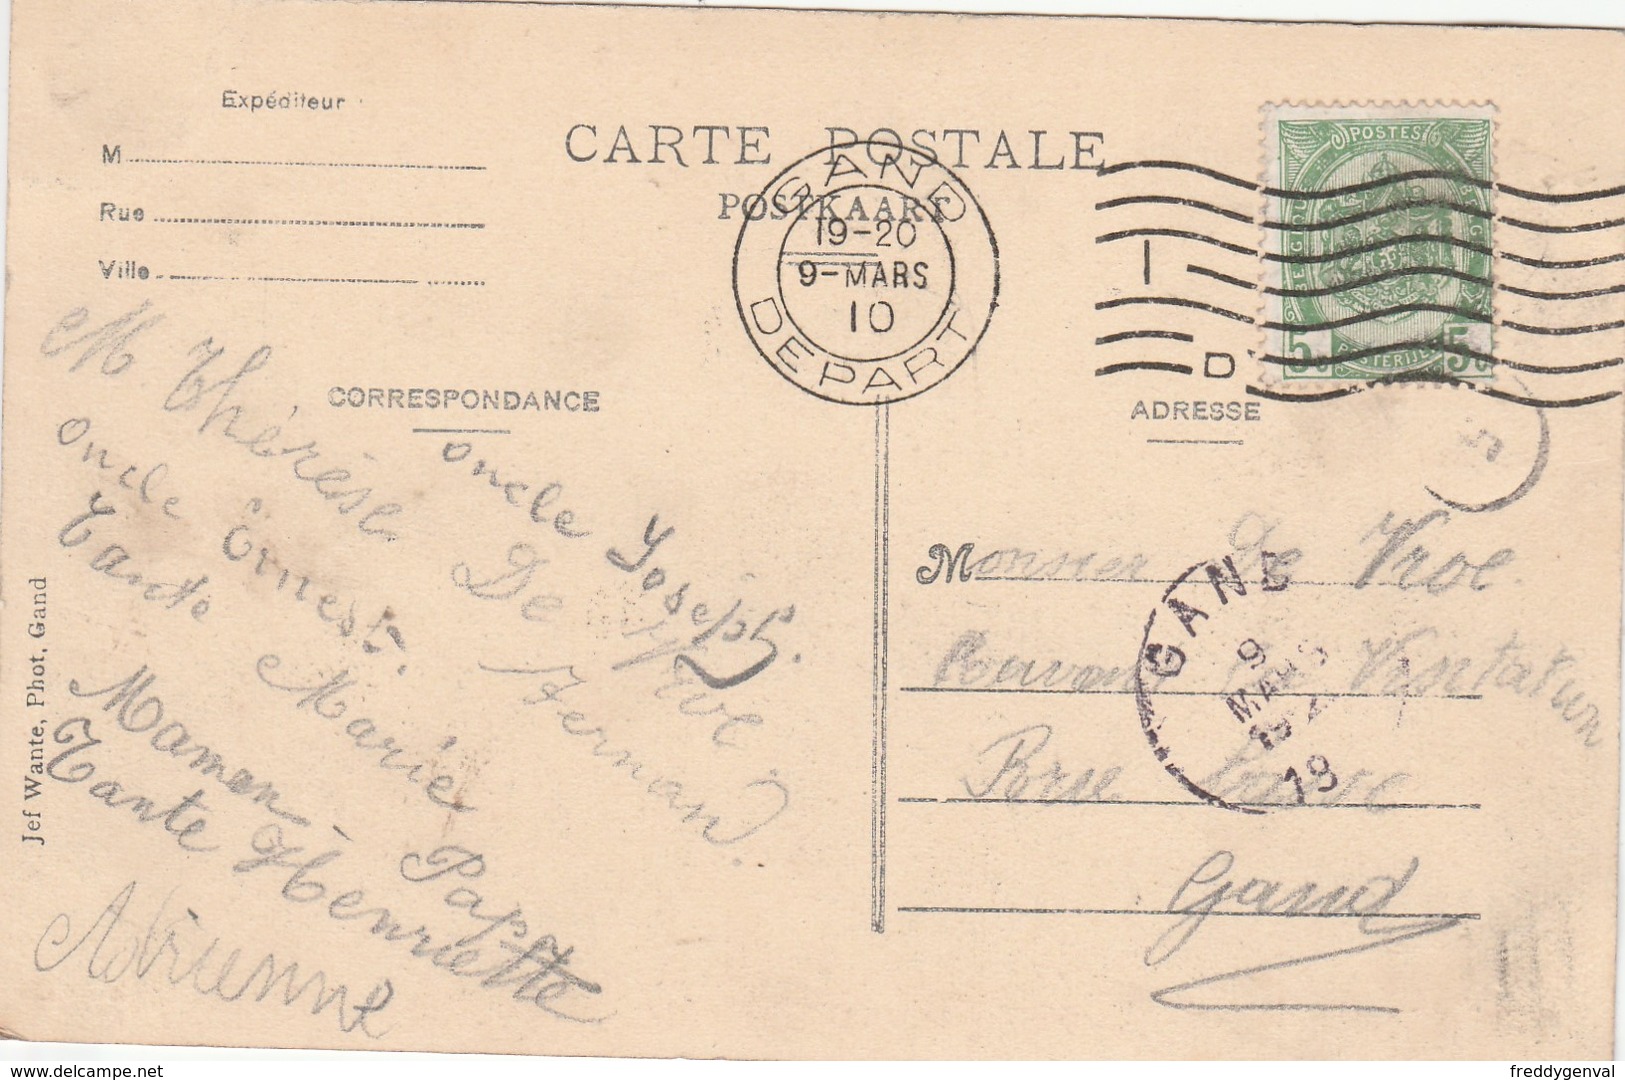 Expéditeur
M
Rue
Ville
CARTE POSTALE
POSTKAART
GAND
19-20
9-MARS
10
DEPART
I
D
POSTES
BELGIQUE
BELGIE
5c
POSTERIJEN
5c
CORRESPONDANCE
ADRESSE
5
M Thérèse De
Fernand.
oncle Joseph.
oncle Ernest.
Tante Marie
Maman Papa
Tante Henriette
Adrienne
Monsieur De Vroe.
Visitation
Gand
GAND
9
MARS
19
Jef Wante, Phot, Gand
delcampe.net
freddygenval